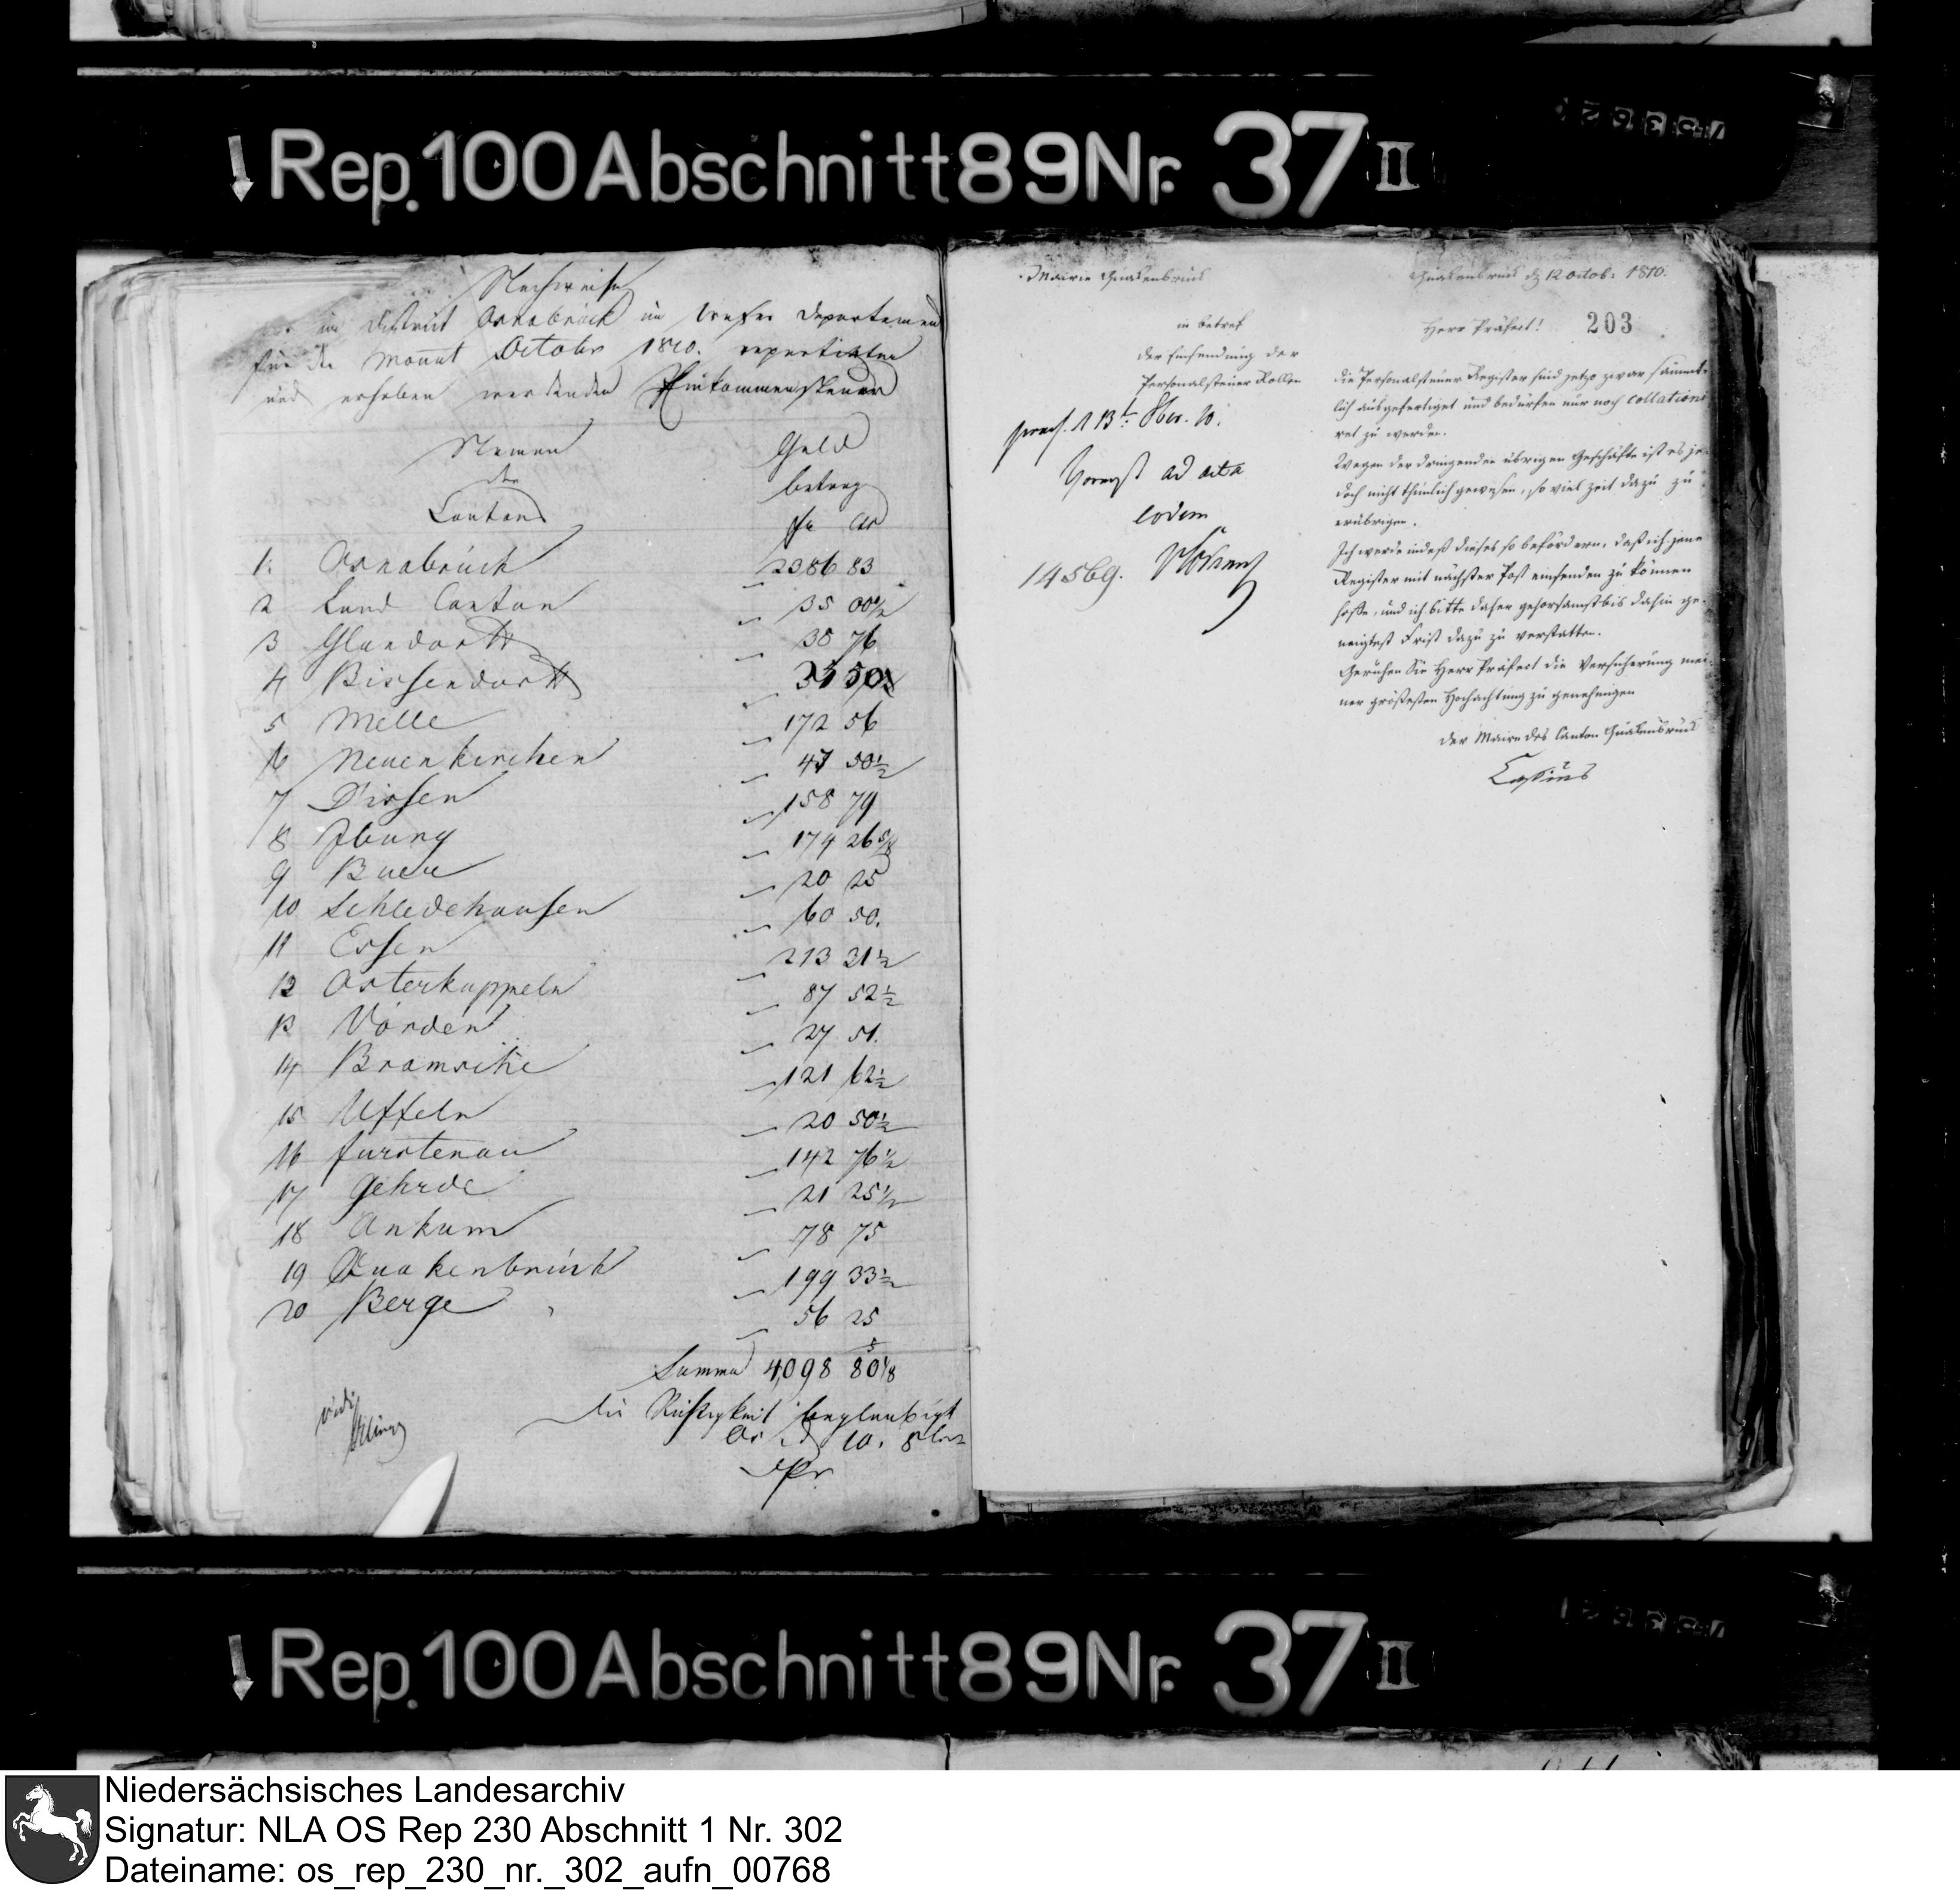 Rep. 100 Abschnitt 89 Nr. 37 II
Nachweise
im District Osnabrück im Weser Departement
für den Monat Octobr 1810. repartirten
und erhoben werdenden Einkommensteuer
Namen Geld
der betrag
Cantons fr cs
1. Osnabrück 2386 83
2 Land Canton 35 00½
3 Glandorff 38 76
4 Bissendorff 35 50½
5 Melle 172 56
6 Neuenkirchen 47 50½
7 Dissen 158 79
8 Iburg 174 26⅝
9 Buer 20 25
10 Schledehausen 60 50.
11 Essen 213 31½
12 Osterkappeln 87 52½
13 Vörden 27 51.
14 Bramsche 121 62½
15 Uffeln 20 50½
16 furstenau 142 76½
17 Gehrde 21 25½
18 Ankum 78 75
19 Quakenbrück 199 33½
20 Berge 56 25
Summa 4,098 80⅝
die Richtigkeit beglaubigt
10. 8br
vidi
Mairie Quakenbrück
Quakenbrück d 12 Octob. 1810.
203
in betref
der Einsendung der
Personalsteuer Rollen
praes. d 13t. 8ber. 10.
ad acta
eodem
14569.
Herr Präfect!
die Personalsteuer Register sind jetzo zwar sämmt-
lich ausgefertiget und bedürfen nur noch collationi
ret zu werden.
Wegen der dringenden übrigen Geschäfte ist es je-
doch nicht thunlich gewesen, so viel Zeit dazu zu
erübrigen.
Ich werde indeß dieses so befördern, daß ich jene
Register mit nächster Post einsenden zu können
hoffe, und ich bitte daher gehorsamst bis dahin ge-
neigtest Frist dazu zu verstatten.
Geruhen Sie Herr Präfect die Versicherung mei-
ner größesten Hochachtung zu genehmigen
der Maire des Canton Quakenbrück
Rep. 100 Abschnitt 89 Nr. 37 II
Niedersächsisches Landesarchiv
Signatur: NLA OS Rep 230 Abschnitt 1 Nr. 302
Dateiname: os_rep_230_nr._302_aufn_00768